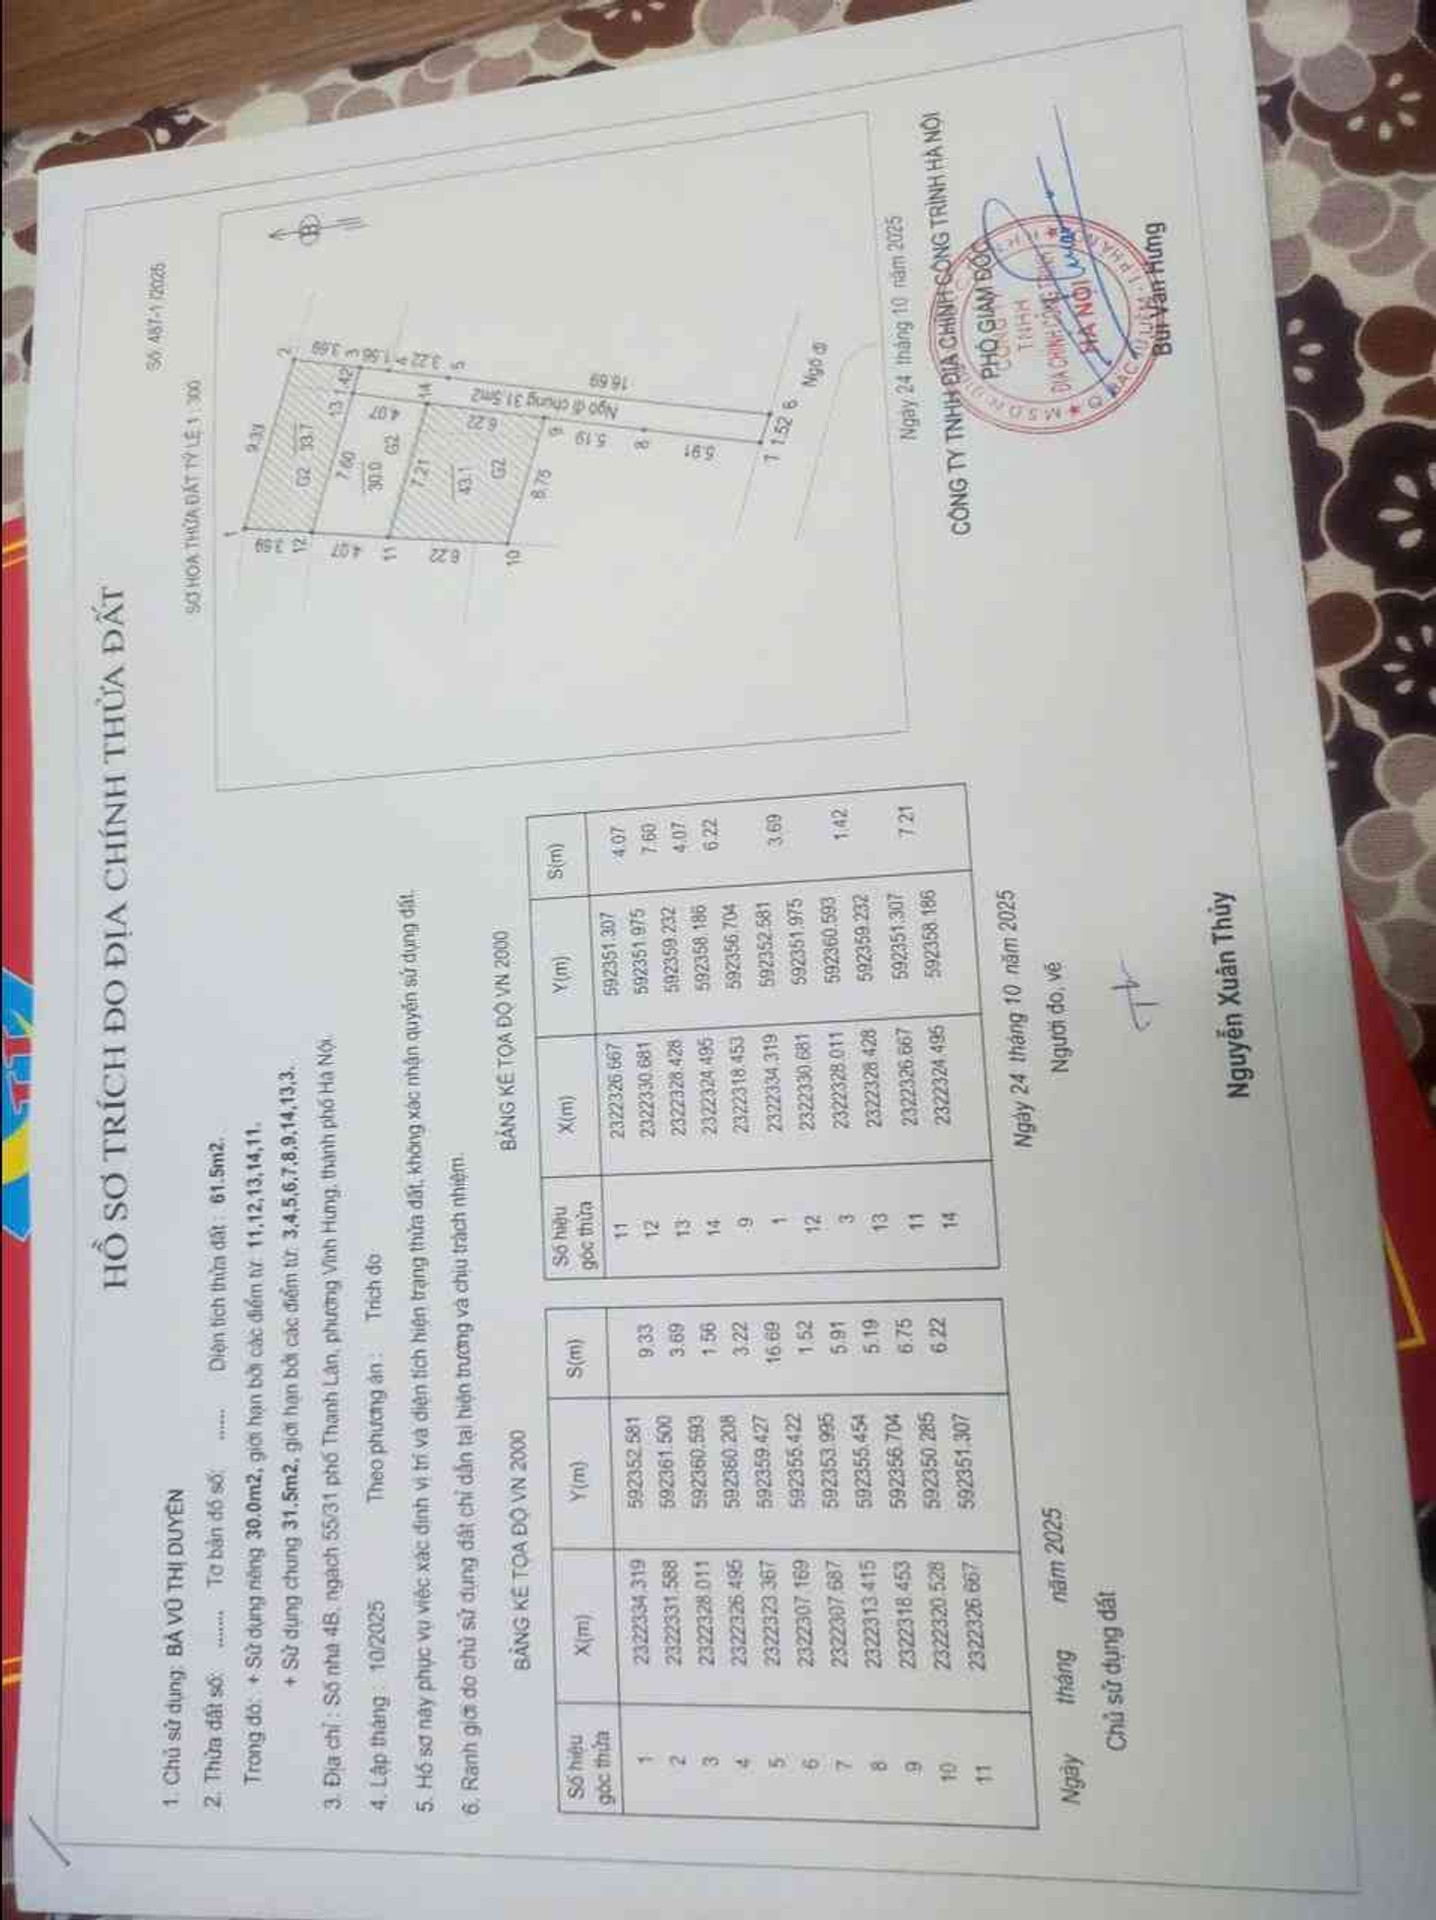 HỒ SƠ TRÍCH ĐO ĐỊA CHÍNH THỬA ĐẤT
Số: 487-1 /2025
1. Chủ sử dụng: BÀ VŨ THỊ DUYÊN
2. Thửa đất số: ....... Tờ bản đồ số: ...... Diện tích thửa đất : 61.5m2.
Trong đó: + Sử dụng riêng 30.0m2, giới hạn bởi các điểm từ: 11,12,13,14,11.
+ Sử dụng chung 31.5m2, giới hạn bởi các điểm từ: 3,4,5,6,7,8,9,14,13,3.
3. Địa chỉ : Số nhà 4B, ngách 55/31 phố Thanh Lân, phường Vĩnh Hưng, thành phố Hà Nội.
4. Lập tháng : 10/2025 Theo phương án : Trích đo
5. Hồ sơ này phục vụ việc xác định vị trí và diện tích hiện trạng thửa đất, không xác nhận quyền sử dụng đất.
6. Ranh giới do chủ sử dụng đất chỉ dẫn tại hiện trường và chịu trách nhiệm.
BẢNG KÊ TỌA ĐỘ VN 2000
Số hiệu góc thửa X(m) Y(m) S(m)
1 2322334.319 592352.581
9.33
2 2322331.588 592361.500
3.69
3 2322328.011 592360.593
1.56
4 2322326.495 592360.208
3.22
5 2322323.367 592359.427
16.69
6 2322307.169 592355.422
1.52
7 2322307.687 592353.995
5.91
8 2322313.415 592355.454
5.19
9 2322318.453 592356.704
6.75
10 2322320.528 592350.285
6.22
11 2322326.667 592351.307
BẢNG KÊ TỌA ĐỘ VN 2000
Số hiệu góc thửa X(m) Y(m) S(m)
11 2322326.667 592351.307
4.07
12 2322330.681 592351.975
7.60
13 2322328.428 592359.232
4.07
14 2322324.495 592358.186
6.22
9 2322318.453 592356.704
1 2322334.319 592352.581
3.69
12 2322330.681 592351.975
3 2322328.011 592360.593
1.42
13 2322328.428 592359.232
11 2322326.667 592351.307
7.21
14 2322324.495 592358.186
SƠ HỌA THỬA ĐẤT TỶ LỆ 1 : 300
B
1
9.33
2
3.69
G2
33.7
3.69
12
7.60
13
1.42
3
1.56
4
4.07
30.0
G2
4.07
3.22
5
11
7.21
14
6.22
43.1
G2
6.22
10
6.75
9
Ngõ đi chung 31.5m2
5.19
16.69
8
5.91
7
1.52
6
Ngõ đi
Ngày tháng năm 2025
Chủ sử dụng đất
Ngày 24 tháng 10 năm 2025
Người đo, vẽ
Nguyễn Xuân Thủy
Ngày 24 tháng 10 năm 2025
CÔNG TY TNHH ĐỊA CHÍNH CÔNG TRÌNH HÀ NỘI
PHÓ GIÁM ĐỐC
TNHH
ĐỊA CHÍNH CÔNG TRÌNH
HÀ NỘI
Bùi Văn Hưng